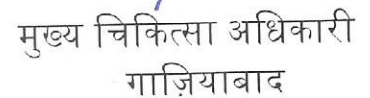 मुख्य चिकित्सा अधिकारी
गाज़ियाबाद